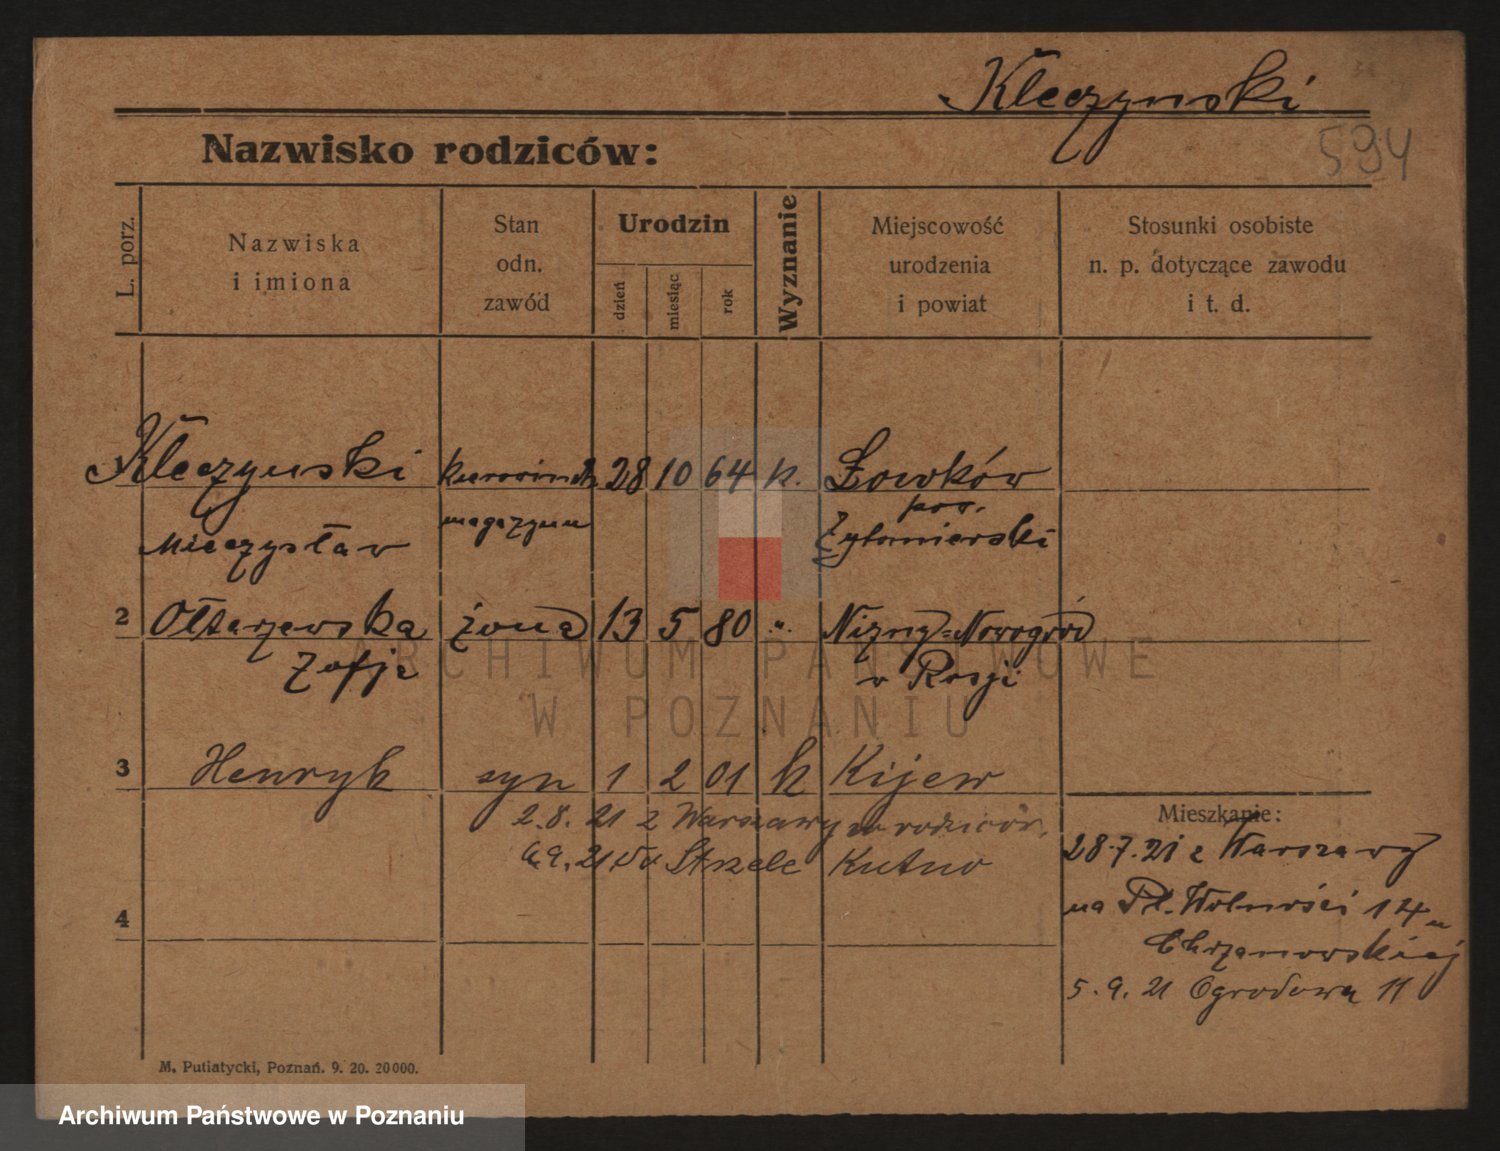 Kleczynski
594
Nazwisko rodziców:
L. porz.
Nazwiska
i imiona
Stan
odn.
zawód
Urodzin
dzień
miesiąc
rok
Wyznanie
Miejscowość
urodzenia
i powiat
Stosunki osobiste
n. p. dotyczące zawodu
i t. d.
Kleczynski 28 10 64 k. Łowków
magazynu pow.
Mieczysław Żytomierski
2 Ołtarzewska żona 13 5 80 „. Nizny=Nowogród
Zofja w Rosji
3 Henryk syn 1 2 01 k Kijew
2.8.21 z Warszawy rodziców.
6.9.21 Strzelc Kutno
Mieszkanie:
28.7.21 z Warszawy
na Pl. Wolności 14
u Chrzanowskiej
5.9.21 Ogrodowa 11
4
M. Putiatycki, Poznań. 9. 20. 20000.
ARCHIWUM PAŃSTWOWE
W POZNANIU
Archiwum Państwowe w Poznaniu